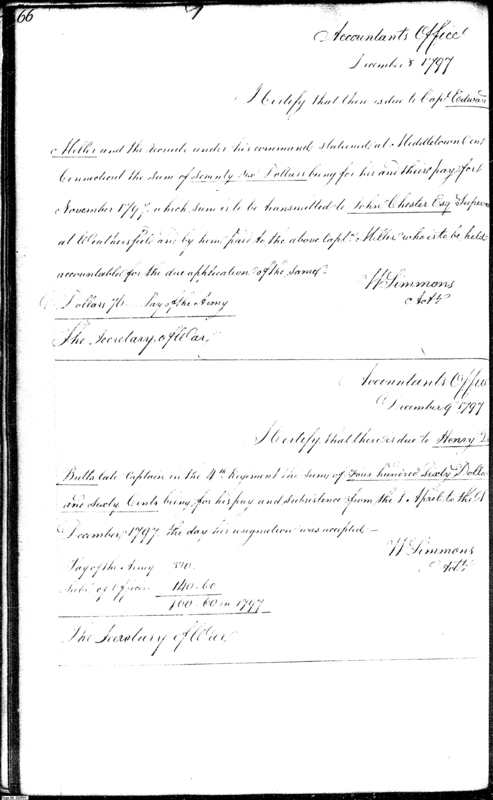 66
Accountants Office
December 8 1797
I Certify that there is due to Capt. Edward
Miller and the recruits under his command stationed at Middletown Con
Connecticut the sum of seventy six Dollars being for his and their pay for
November 1797, which sum is to be transmitted to John Chester Esq Superv
at Weathersfield and by him paid to the above Capt. Miller who is to be held
accountable for the due application of the same
W Simmons
Actt
Dollars 76 Pay of the Army
The Secretary of War,
Accountants Offic
December 9 1797
I Certify that there is due to Henry D
Butts late Captain in the 4th Regiment the sum of four hundred sixty Dolla
and sixty Cents being for his pay and subsistence from the 1. April to the
December, 1797 the day his resignation was accepted
W Simmons
Actt
Pay of the Army 320.
Subs. of Officers 140.60
460.60 in 1797
The Secretary of War